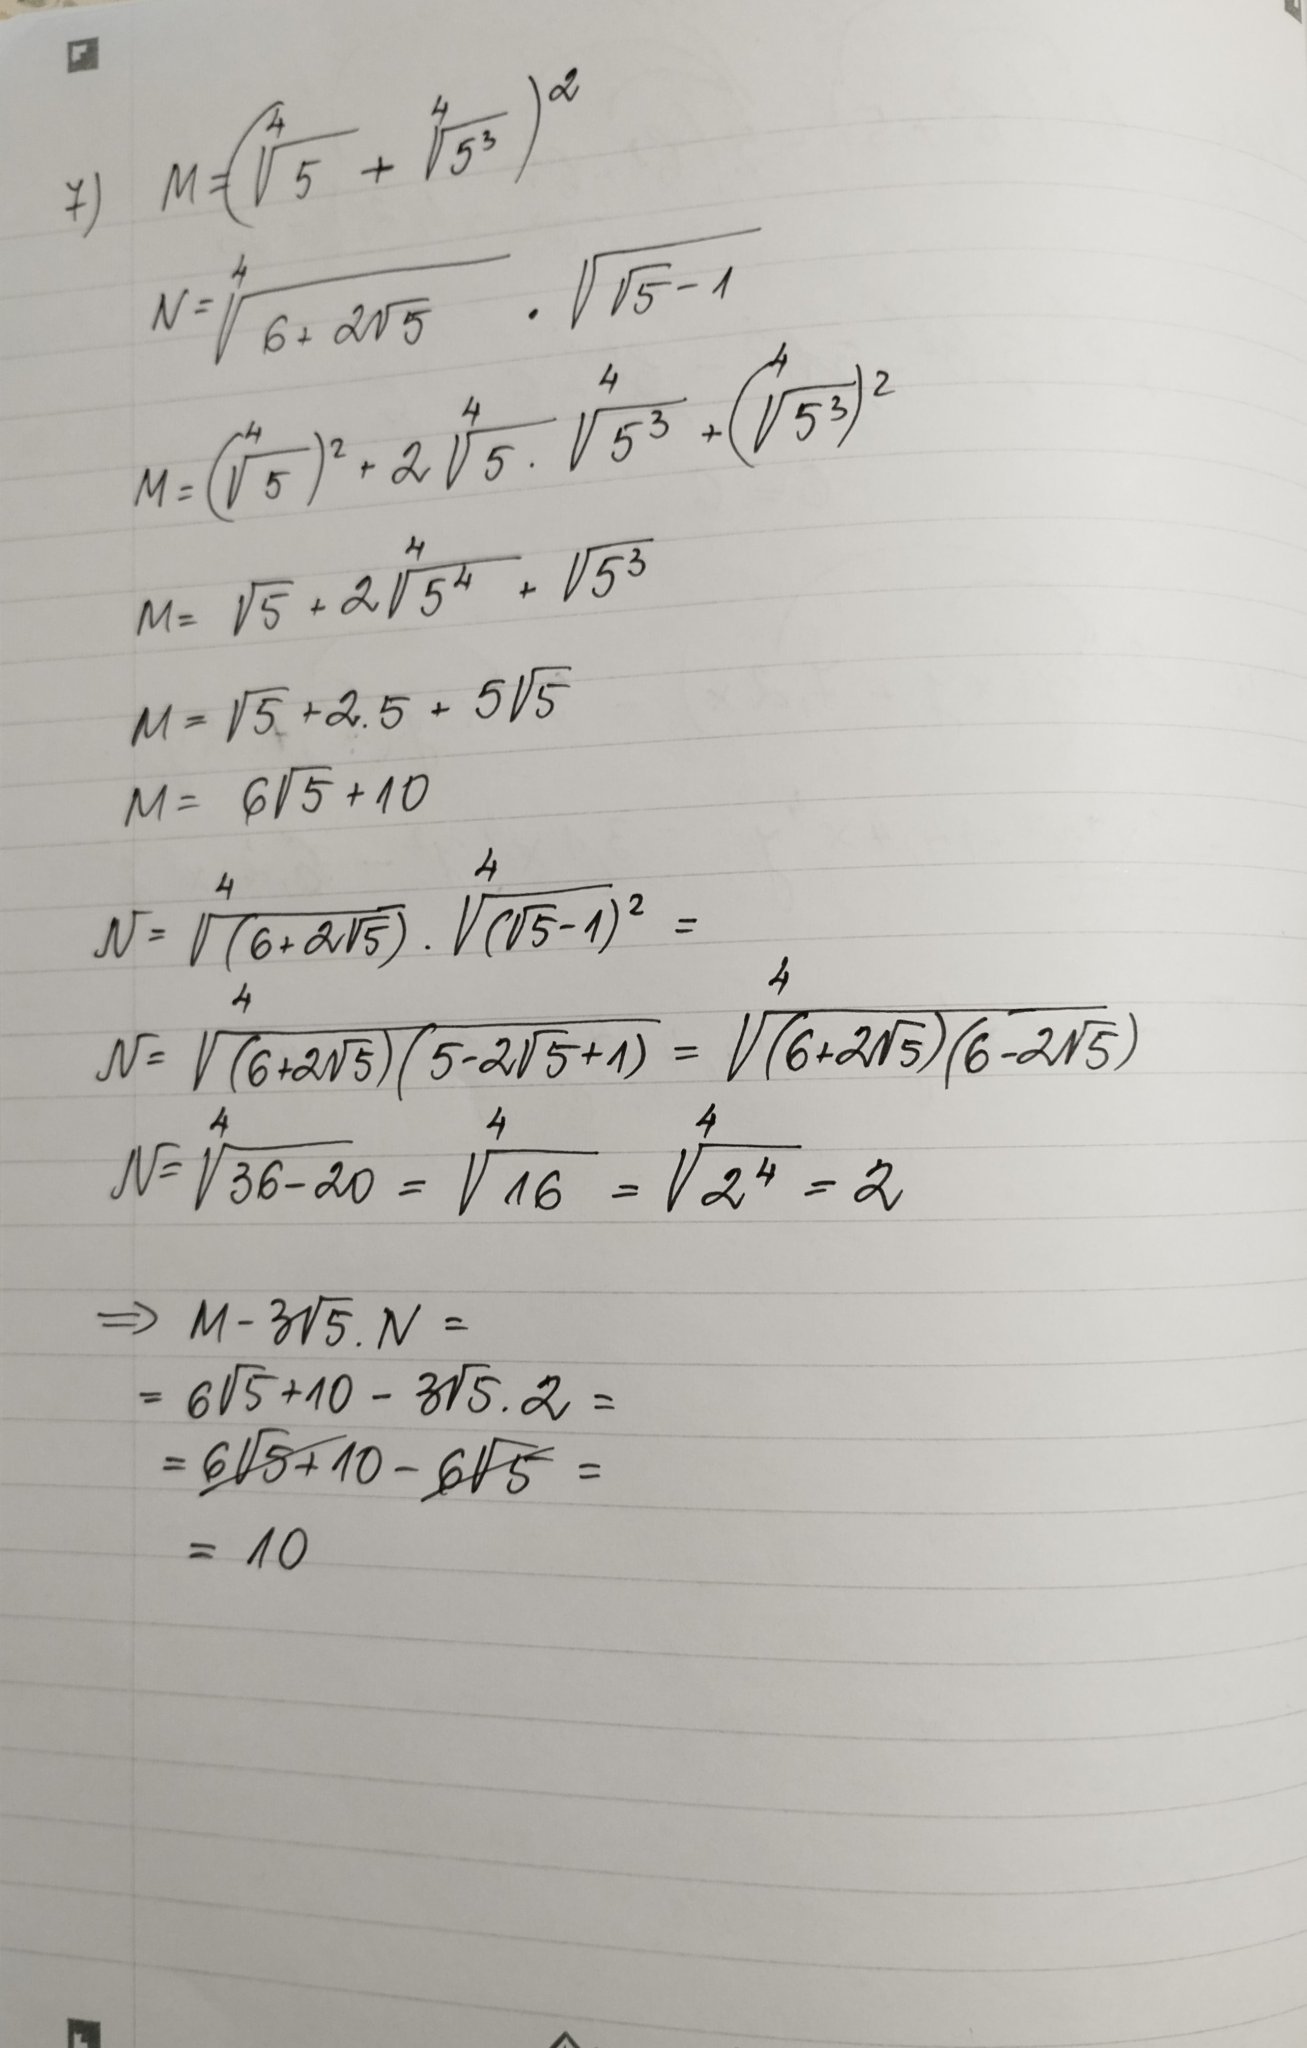 7) M = (∜5 + ∜5³)²
N = ∜(6 + 2√5) . √(√5 - 1)
M = (∜5)² + 2∜5 . ∜5³ + (∜5³)²
M = √5 + 2∜5⁴ + √5³
M = √5 + 2.5 + 5√5
M = 6√5 + 10
N = ∜(6 + 2√5) . ∜(√5 - 1)² =
N = ∜(6+2√5)(5-2√5+1) = ∜(6+2√5)(6-2√5)
N = ∜36-20 = ∜16 = ∜2⁴ = 2
⇒ M - 3√5 . N =
= 6√5 + 10 - 3√5 . 2 =
= 6√5 + 10 - 6√5 =
= 10